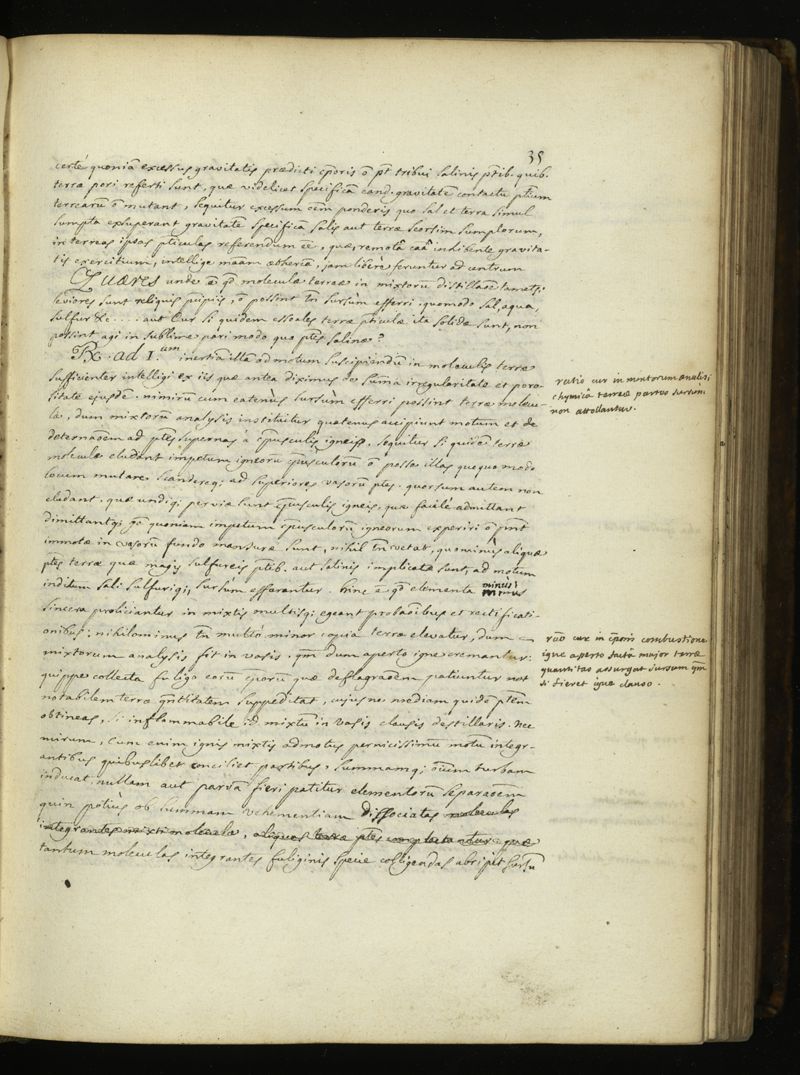 35
certé quoniā excessus gravitatis prædicti cp̄oris ō pt̄ tribui salinis pt̄ib. quib.
terræ pori referti sunt, quæ videlicet specificā eand. gravitatē contactu pt̄ium
terrearū ō mutant, sequitur excessum ponderis quo sal et terra simul
sumpta exsuperant gravitatē specificā salis aut terræ seorsim sumptorum,
in terreas ipsas pt̄iculas referendum eē, quæ, remotā caā inhibente gravita-
tis exercitium, intellige māam ætheriā, jam liberé feruntur ad centrum
Quæres unde ē qd̄ moleculæ terreæ in mixtorū distillaōe tametsi
leviores sunt reliquis pcipiis, ō possint tn̄ sursùm efferri, quomodo sal, aqua,
sulfur &c.... aut cur si quidem eēoales terræ pt̄iculæ ita solidæ sunt, non
possint agi in sublime pari modo quo pt̄es salinæ?
Rx. ad 1.um inertia illa ad motum suscipiendū in moleculis terræ
sufficienter intelligi ex iis quæ antea diximus de summa irregularitate et poro-
sitate ejusdē. nimirū cum eatenùs sursùm efferri possint terræ molecu-
læ, dum mixtorū analysis instituitur quatenus accipiunt motum et de
determ̄aōem ad pt̄es supernas à cp̄usculis igneis, sequitur si quidē terræ
moleculæ eludant impetum igneorū cp̄usculorū ō posse illas quoquomodo
locum mutare scandereq; ad superiores vasorū pt̄es. quorsum autem non
eludant, quæ undiq; perviæ sunt cp̄usculis igneis, quæ facilé admittant
dimittantq; quoniam impetum cp̄usculorū igneorum experiri ō pn̄t
immotæ in vasorū fundo mansuræ sunt, nihil tn̄ vetat, quominùs aliquæ
pt̄es terræ quæ magis sulfureis pt̄ib. aut salinis implicatæ sunt, ad motum
inditum sali sulfuriq;, sursum efferantur. hinc ē qd̄ elementa minus
sincera proliciantur in mixtis multisq; egeant probaōibus et rectificati-
onibus; nihilominus tn̄ multò minor copia terræ elevatur, dum
mixtorum analysis fit in vasis. qm̄ dum aperto igne cremantur:
quippe collecta fuligo eorū cp̄orū quæ deflagraōem patiuntur
notabilem terræ qn̄titatem suppeditat, cujus ne mediam quidē pt̄em
obtineas, si inflammabile id mixtū in vasis clausis destillaris. nec
mirum, cum enim ignis mixtis admotus pernicissimū motū integr-
antibus quibuslibet conciliet partibus, summamq; oīum turbam
inducat, nullam aut parvā fieri patitur elementorū separaōem
quin potiùs ob summam vehementiam dissociatas moleculas
integrantes mixti moleculæ, aliquas terræ pt̄es complectantur quæ
tantum moleculas integrantes fuliginis specie colligendas abripit sursū
ratio cur in mixtorum analisi
chymicâ terreæ partes sursum
non attollantur.
rāo cur in cp̄oris combustione
igne aperto factâ major terræ
quantitas assurgat sursum qm̄
si fieret igne clauso.